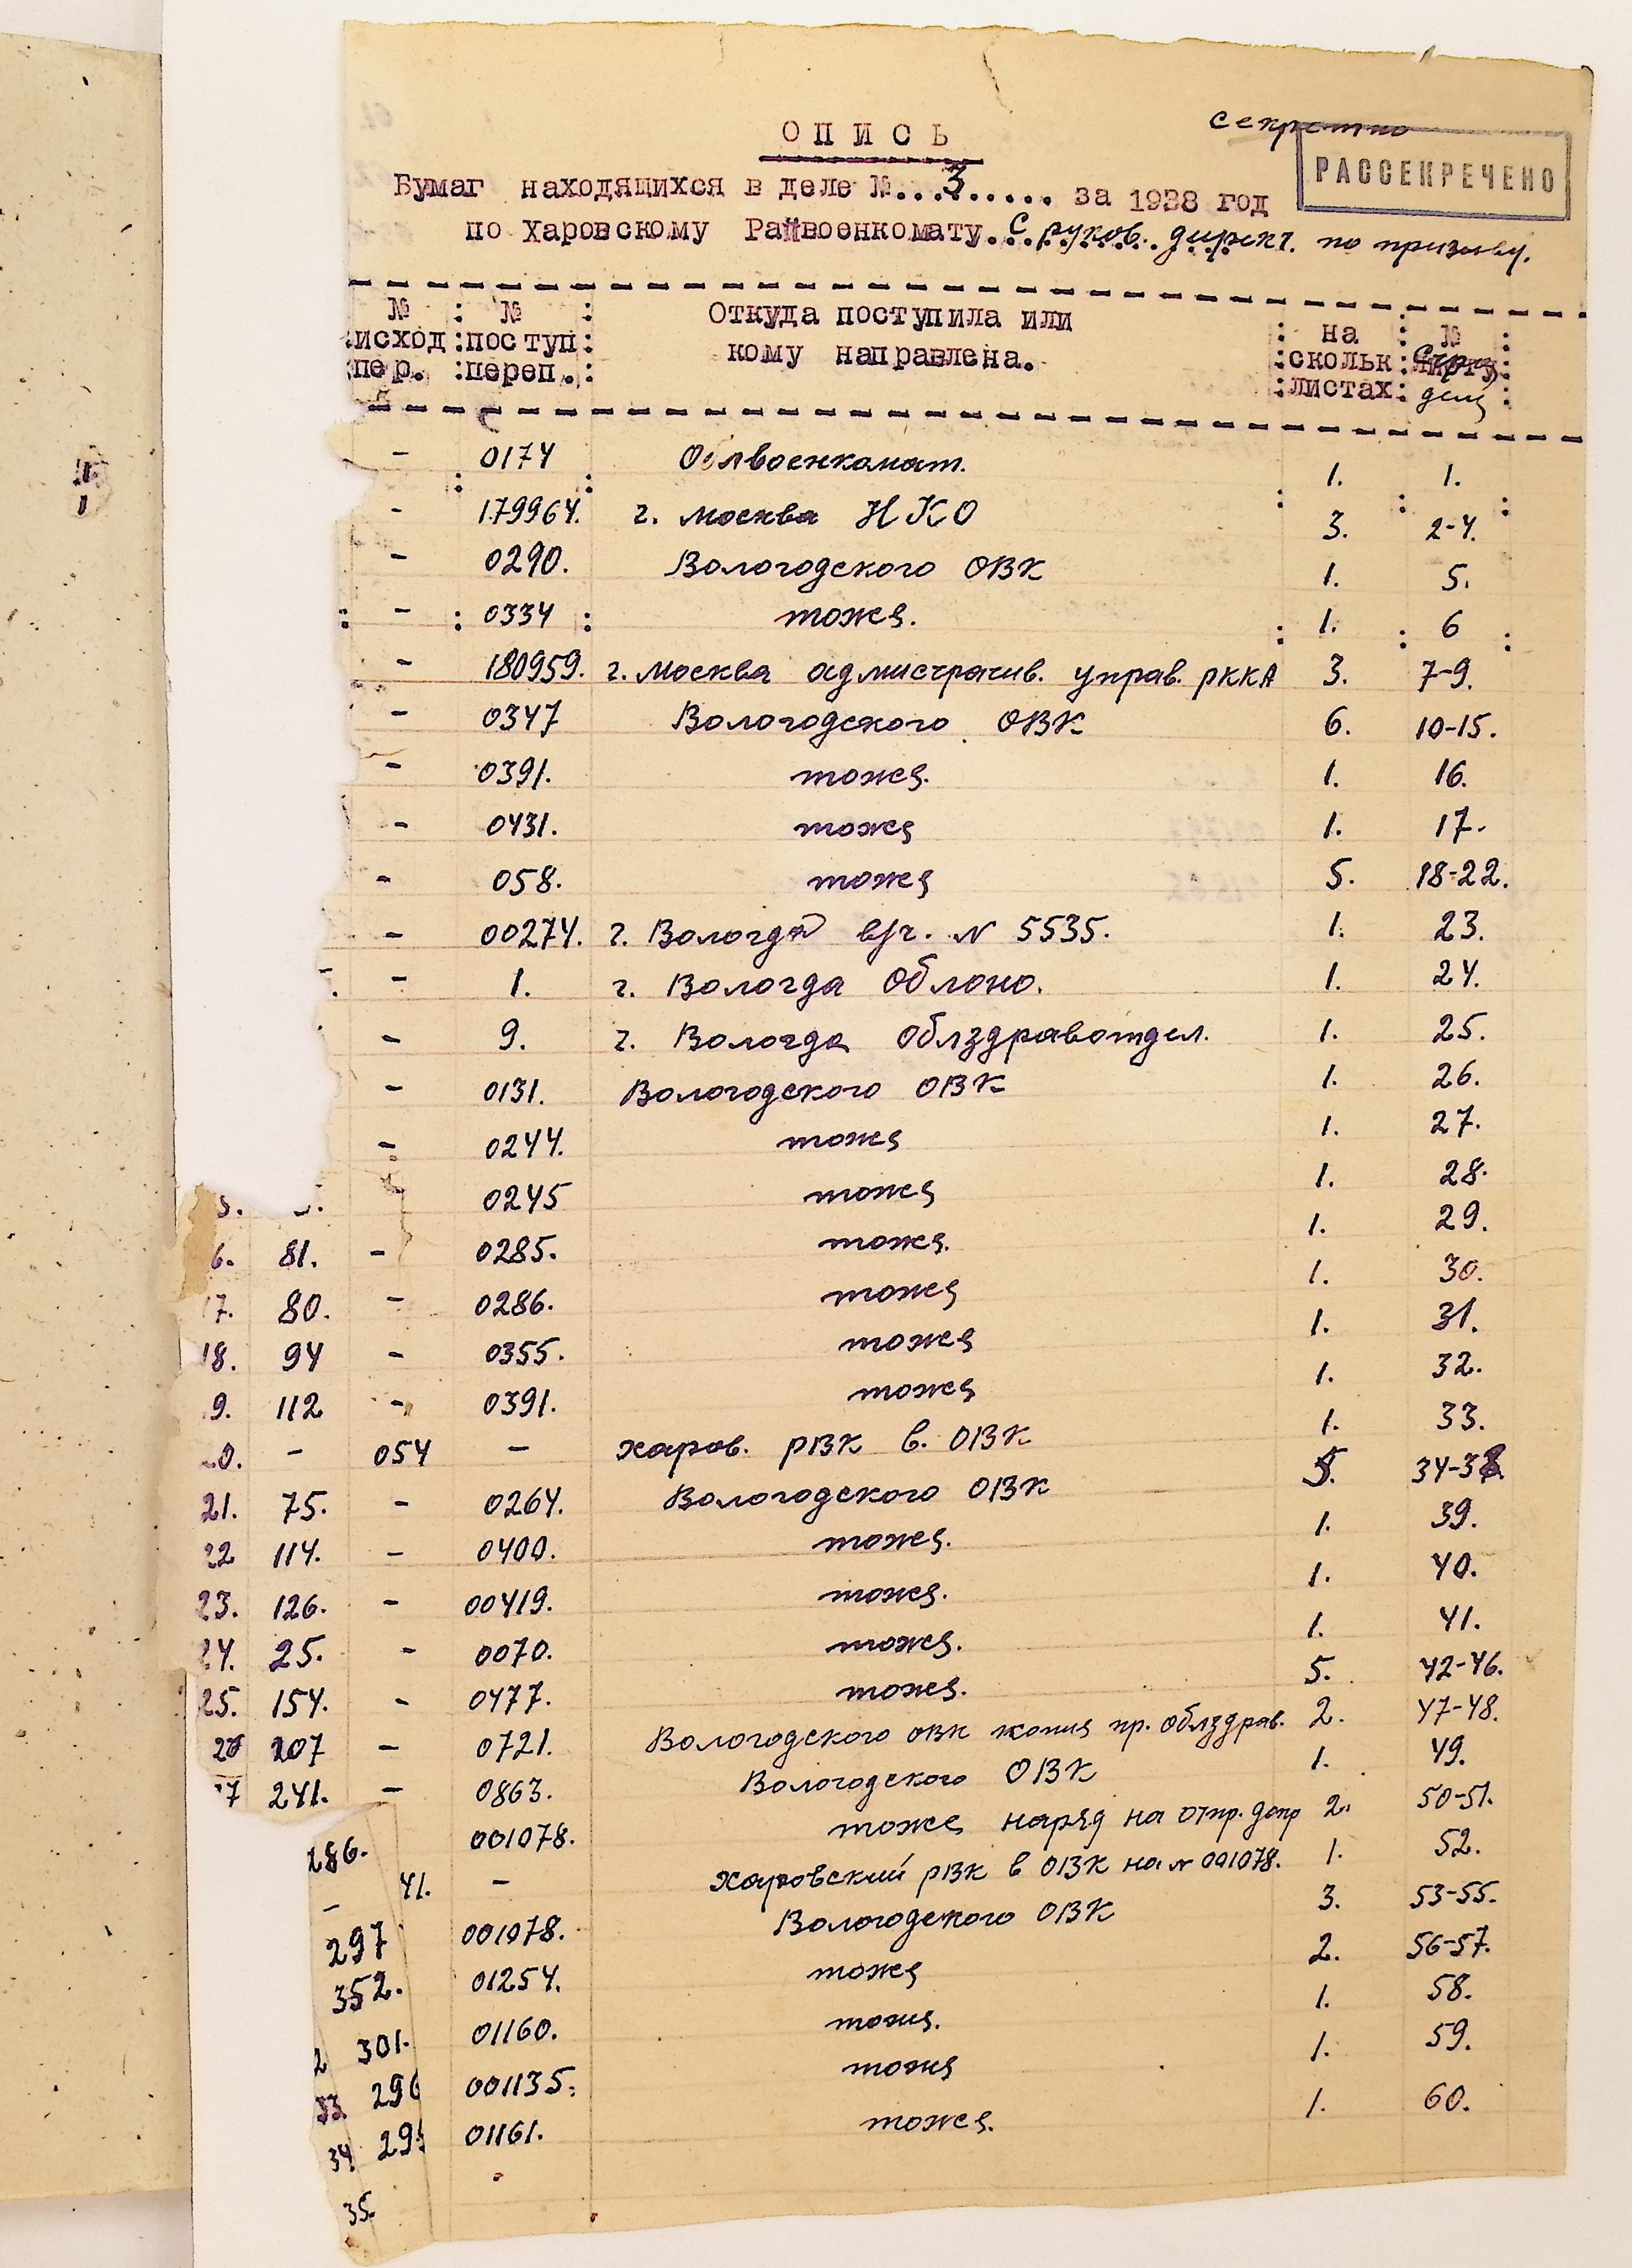 секретно
РАССЕКРЕЧЕНО
ОПИСЬ
Бумаг находящихся в деле №...3..... за 1938 год
по Харовскому Райвоенкомату. С руков. директ. по призыву.
№ : № : Откуда поступила или : на : № :
исход : поступ : кому направлена. : скольк : стр. :
пер. : переп. : : листах : дела :
- 0174 Облвоенкомат. 1. 1.
- 179964. г. Москва НКО 3. 2-4.
- 0290. Вологодского ОВК 1. 5.
- 0334 тоже. 1. 6
- 180959. г. Москва адмистратив. управ. РККА 3. 7-9.
- 0347 Вологодского ОВК 6. 10-15.
- 0391. тоже. 1. 16.
- 0431. тоже 1. 17.
- 058. тоже 5. 18-22.
- 00274. г. Вологда в/ч. № 5535. 1. 23.
- 1. г. Вологда Облоно. 1. 24.
- 9. г. Вологда Облздравотдел. 1. 25.
- 0131. Вологодского ОВК 1. 26.
- 0244. тоже 1. 27.
0245 тоже 1. 28.
6. 81. - 0285. тоже. 1. 29.
17. 80. - 0286. тоже 1. 30.
18. 94 - 0355. тоже 1. 31.
9. 112 - 0391. тоже 1. 32.
0. - 054 - Харов. РВК в. ОВК 1. 33.
21. 75. - 0264. Вологодского ОВК 5. 34-38.
22 114. - 0400. тоже. 1. 39.
23. 126. - 00419. тоже. 1. 40.
24. 25. - 0070. тоже. 1. 41.
25. 154. - 0477. тоже. 5. 42-46.
26 207 - 0721. Вологодского ОВК копия пр. облздрав. 2. 47-48.
27 241. - 0863. Вологодского ОВК 1. 49.
286. 001078. тоже наряд на отпр. допр 2. 50-51.
- 41. - Харовский РВК в ОВК на № 001078. 1. 52.
297 001078. Вологодского ОВК 3. 53-55.
352. 01254. тоже 2. 56-57.
2 301. 01160. тоже. 1. 58.
33. 296 001135. тоже 1. 59.
34 295 01161. тоже. 1. 60.
35.